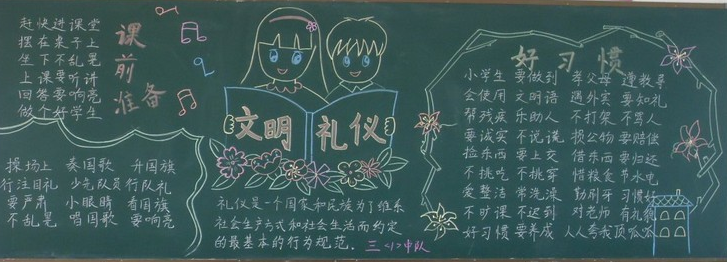 赶快进课堂
摆在桌子上
坐下不乱晃
上课要听讲
回答要响亮
做个好学生
课前准备
操场上 奏国歌 升国旗
行注目礼 少先队员 行队礼
要严肃 小眼睛 看国旗
不乱晃 唱国歌 要响亮
文明礼仪
礼仪是一个国家和民族为了维系
社会生产方式和社会生活而约定
的最基本的行为规范。
三〈1〉中队
好习惯
小学生 要做到 孝父母 遵教导
会使用 文明语 遇外宾 要知礼
帮残疾 乐助人 不打架 不骂人
要诚实 不说谎 损公物 要赔偿
捡东西 要上交 借东西 要归还
不挑吃 不挑穿 惜粮食 节水电
爱整洁 常洗澡 勤刷牙 习惯好
不旷课 不迟到 对老师 有礼貌
好习惯 要养成 人人夸我顶呱呱